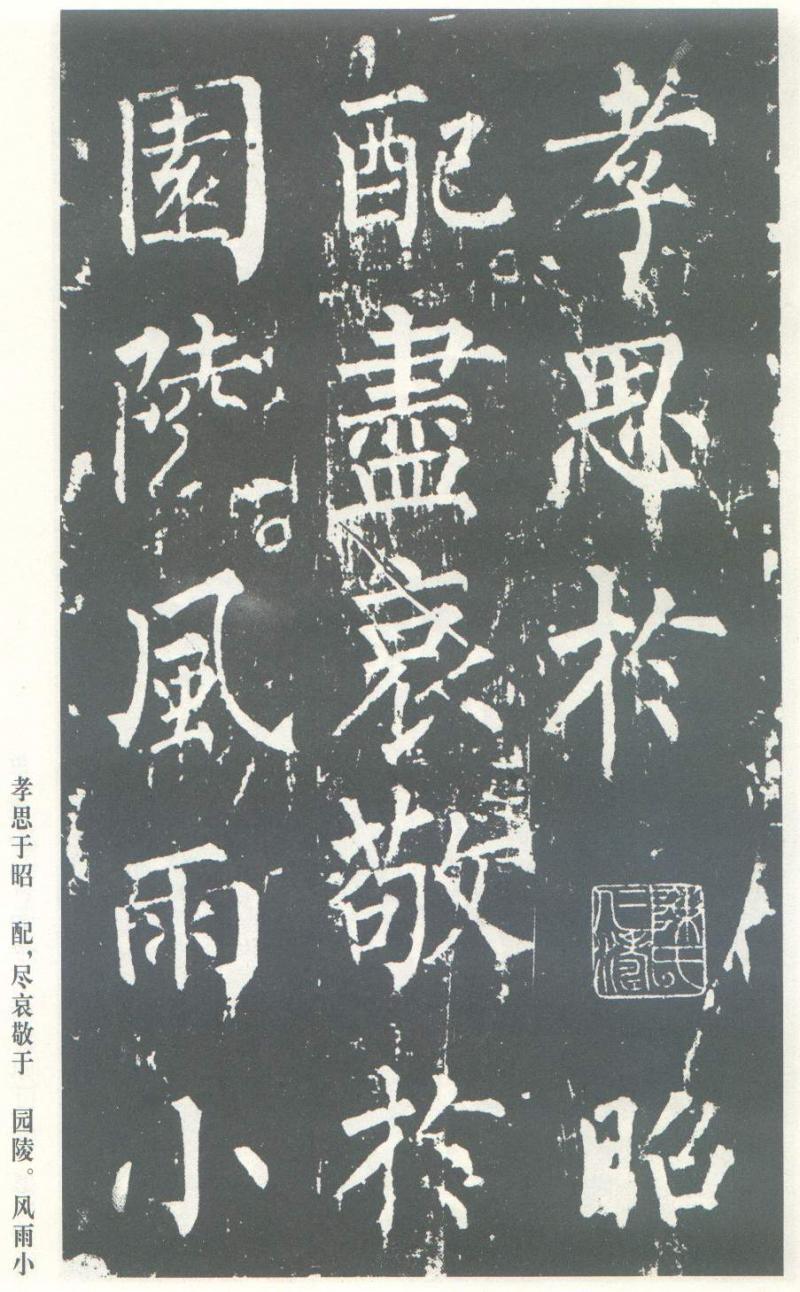 孝思於昭
配盡哀敬於
園陵風雨小
孝思于昭 配，尽哀敬于 园陵。风雨小